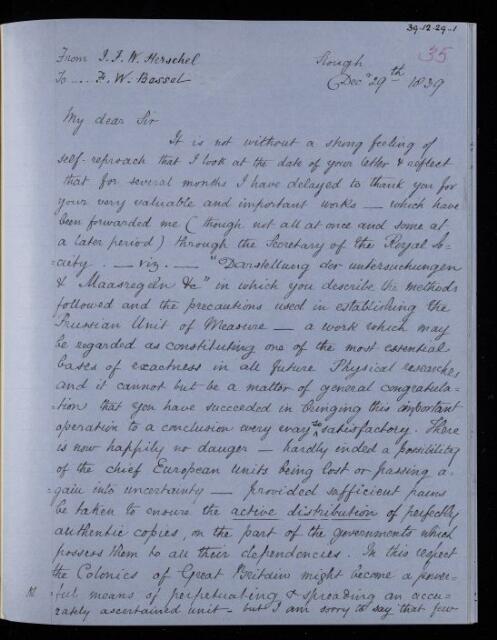 39-12-29-1
35
From J. F. W. Herschel
To .... F. W. Bessel
Slough
Decr 29th 1839
My dear Sir
It is not without a strong feeling of
self-reproach that I look at the date of your letter & reflect
that for several months I have delayed to thank you for
your very valuable and important works — which have
been forwarded me (though not all at once and some at
a later period) through the Secretary of the Royal So=
=ciety. — viz. — "Darstellung der untersuchungen
& Maasregeln &c" in which you describe the methods
followed and the precautions used in establishing the
Prussian Unit of Measure — a work which may
be regarded as constituting one of the most essential
bases of exactness in all future Physical researches
and it cannot but be a matter of general congratula=
=tion that you have succeeded in bringing this important
operation to a conclusion every way so satisfactory. There
is now happily no danger — hardly indeed a possibility
of the chief European units being lost or passing a=
=gain into uncertainty — provided sufficient pains
be taken to ensure the active distribution of perfectly
authentic copies, on the part of the governments which
possess them to all their dependencies. In this respect
the Colonies of Great Britain might become a power=
=ful means of perpetuating & spreading an accu=
=rately ascertained unit – but I am sorry to say that few